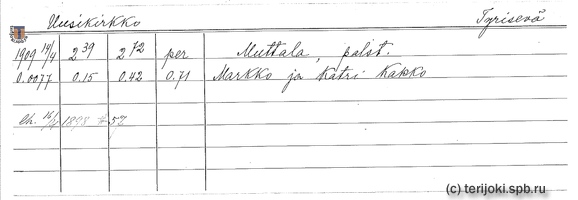 Uusikirkko Tyrisevä
1909 14/4 2 39 2 72 per Muttala, palst.
0.0077 0.15 0.42 0.71 Markko ja Katri Kakko
1898 # 57
(c) terijoki.spb.ru